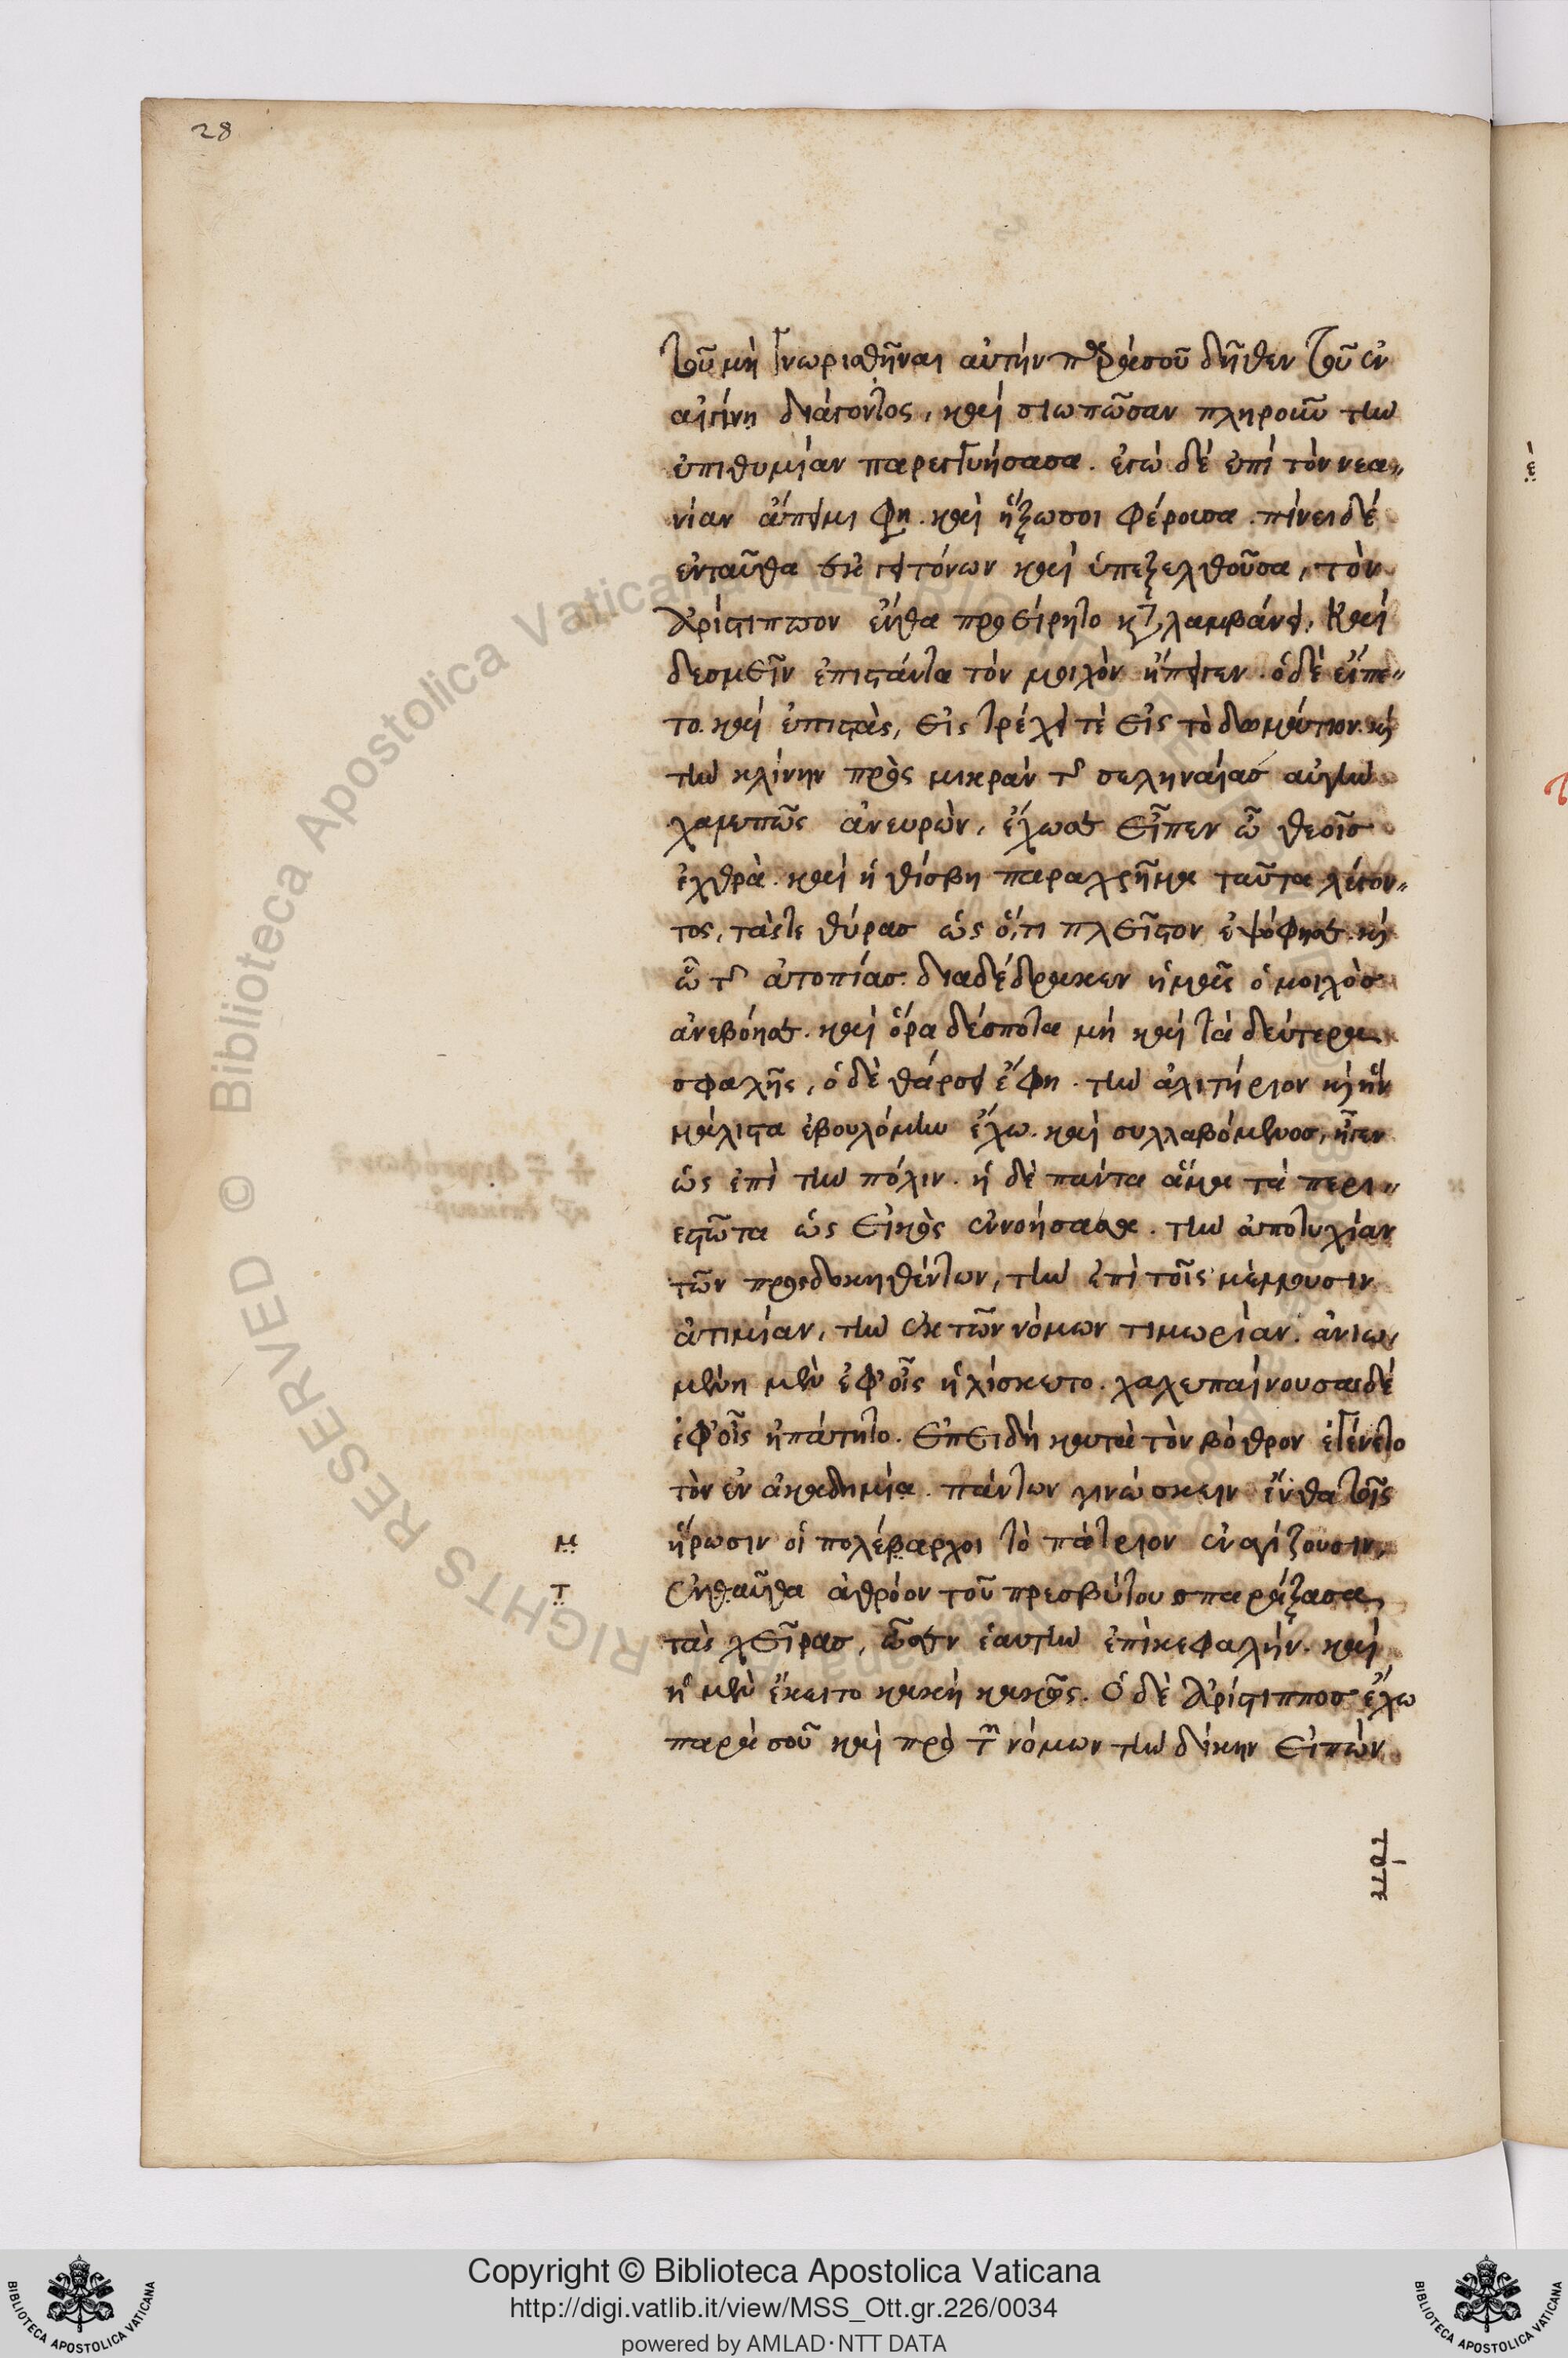 28
τοῦ μὴ γνωρισθῆναι αὐτήν παρὰ σοῦ δῆθεν τοῦ ἐν
αἰγίνη διάγοντος, καί σιωπῶσαν πληροῦν τὴν
ἐπιθυμίαν παρεγγυήσασα. ἐγὼ δὲ ἐπὶ τὸν νεα〃
νίαν ἄπειμι φη. καὶ ἥξω σοι φέρουσα. πίνει δὲ
ἐνταῦθα ἐκ γειτόνων καὶ ὑπεξελθοῦσα, τὸν
Ἀρίστιππον ἔνθα προείρητο καταλαμβάνει, Καὶ
δεσμεῖν ἐπιστάντα τὸν μοιχὸν ἤπειγεν. ὁ δὲ εἵπε〃
το. καὶ ἐπιστὰς, εἰς τρέχει τὲ εἰς τὸ δωμάτιον. κὴ
τὴν κλίνην πρὸς μικρὰν τῆς σεληναίας αὐγὴν
χαλεπῶς ἀνευρὼν, ἔχω σε εἶπεν ὦ θεοῖς
ἐχθρὰ. καὶ ἡ θίσβη παραχρῆμα ταῦτα λέγον〃
τος, τάς τε θύρας ὡς ὅ,τι πλεῖστον ἐψόφησε. καὶ
ὢ τῆς ἀτοπίας. διαδέδρακεν ἡμᾶς ὁ μοιχὸς
ἀνεβόησε. καὶ ὅρα δέσποτα μὴ καὶ τὰ δεύτερα
σφαλῆς, ὁ δὲ θάρσει ἔφη. τὴν ἀλιτήριον καὶ ἣν
μάλιστα ἐβουλόμην ἔχω. καὶ συλλαβόμενος, ἦγεν
ὡς ἐπὶ τὴν πόλιν. ἡ δὲ πάντα ἅμα τὰ περι〃
εστῶτα ὡς εἰκὸς ἐννοήσασα. τὴν ἀποτυχίαν
τῶν προσδοκηθέντων, τὴν ἐπὶ τοῖς μέλλουσιν
ἀτιμίαν, τὴν ἐκ τῶν νόμων τιμωρίαν. ἀνιω
μένη μὲν ἐφ' οἷς ἡλίσκετο. χαλεπαίνουσα δὲ
ἐφ' οἷς ἠπάτητο. ἐπειδὴ κατὰ τὸν βόθρον ἐγένετο
τὸν ἐν ἀκαδημία. πάντων γινώσκειν ἔνθα τοῖς
μ ἥρωσιν οἱ πολέβαρχοι τὸ πάτριον ἐναγίζουσιν,
τ ἐνθαῦθα ἀθρόον τοῦ πρεσβύτου σπαράξασα
τὰς χεῖρας, ὦσεν ἑαυτὴν ἐπὶ κεφαλήν. καὶ
ἡ μὲν ἔκειτο κακὴ κακῶς. ὁ δὲ Ἀρίστιππος ἔχω
παρὰ σοῦ καὶ πρὸ τῶν νόμων τὴν δίκην εἰπών
Copyright © Biblioteca Apostolica Vaticana
http://digi.vatlib.it/view/MSS_Ott.gr.226/0034
powered by AMLAD·NTT DATA
BIBLIOTECA APOSTOLICA VATICANA
BIBLIOTECA APOSTOLICA VATICANA
Biblioteca Apostolica Vaticana ALL RIGHTS RESERVED ©